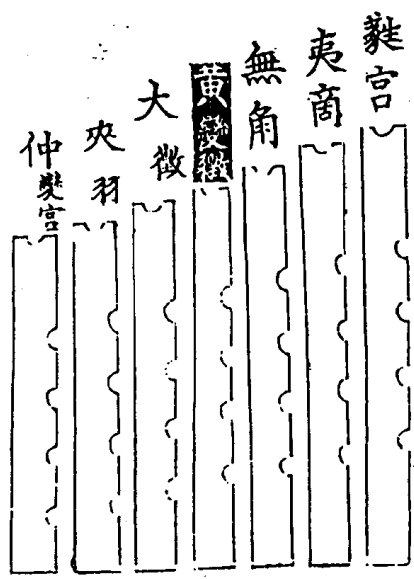 蕤宮
夷商
無角
黃變徵
大徵
夾羽
仲變宮